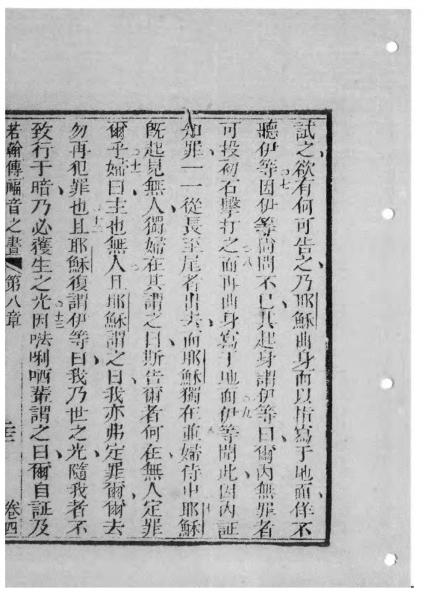 試之欲有何可告之乃耶穌曲身而以指寫于地面佯不
聽伊等因伊等尚問不已其起身謂伊等曰爾內無罪者
可投初石擊打之而再曲身寫于地而伊等聞此因內証
知罪一一從長至尾者出去而耶穌獨在並婦侍中耶穌
既起見無人獨婦在其謂之曰斯告爾者何在無人定罪
爾乎婦曰主也無人且耶穌謂之曰我亦弗定罪爾爾去
勿再犯罪也且耶穌復謂伊等曰我乃世之光隨我者不
致行于暗乃必獲生之光因㗒唎哂輩謂之曰爾自証及
若翰傳福音之書 第八章 卷四